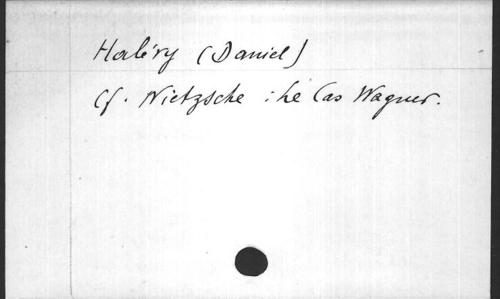 Halévy (Daniel)
Cf. Nietzsche : Le Cas Wagner.